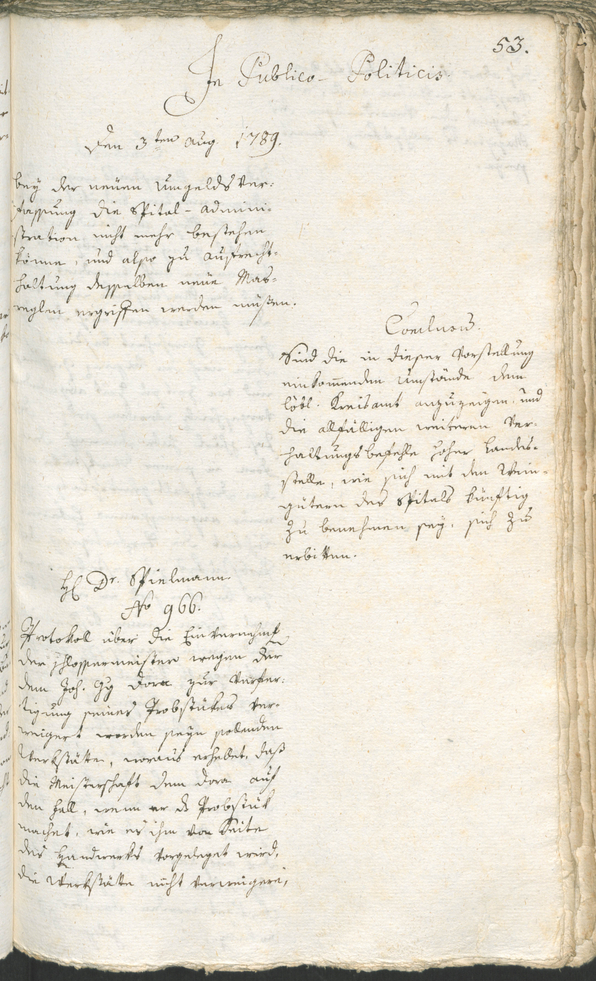 53.
In Publico-Politicis.
Den 3ten Aug 1789.
bey der neuen Umgelds Ver-
fassung die Spital-Admini-
stration nicht mehr bestehen
könne, und also zu Aufrecht-
haltung desselben neue Mas-
reglen ergriffen werden müsten.
Conclusum.
Sind die in dieser Vorstellung
einkomenden Umstände dem
löbl. Kreisamt anzuzeigen, und
die allfälligen weiteren Ver-
haltungsbefehle hoher Landes-
stelle, wie sich mit den Wein-
gütern des Spitals künftig
zu benehmen sey, sich zu
erbitten.
H Dr. Spielmann
No 966.
Protokoll über die Einvernehmung
der Schlossermeister wegen der
dem Joh. Gg Dora zur Verfer-
tigung seines Probstükes ver-
weigert worden seyn sollenden
Werkstätte, woraus erhebet, daß
die Meisterschaft dem Dora auf
den Fall, wenn er ds Probstük
machet, wie es ihm von Seite
des Handwerks vorgelegt wird,
die Werkstätte nicht verweigere,